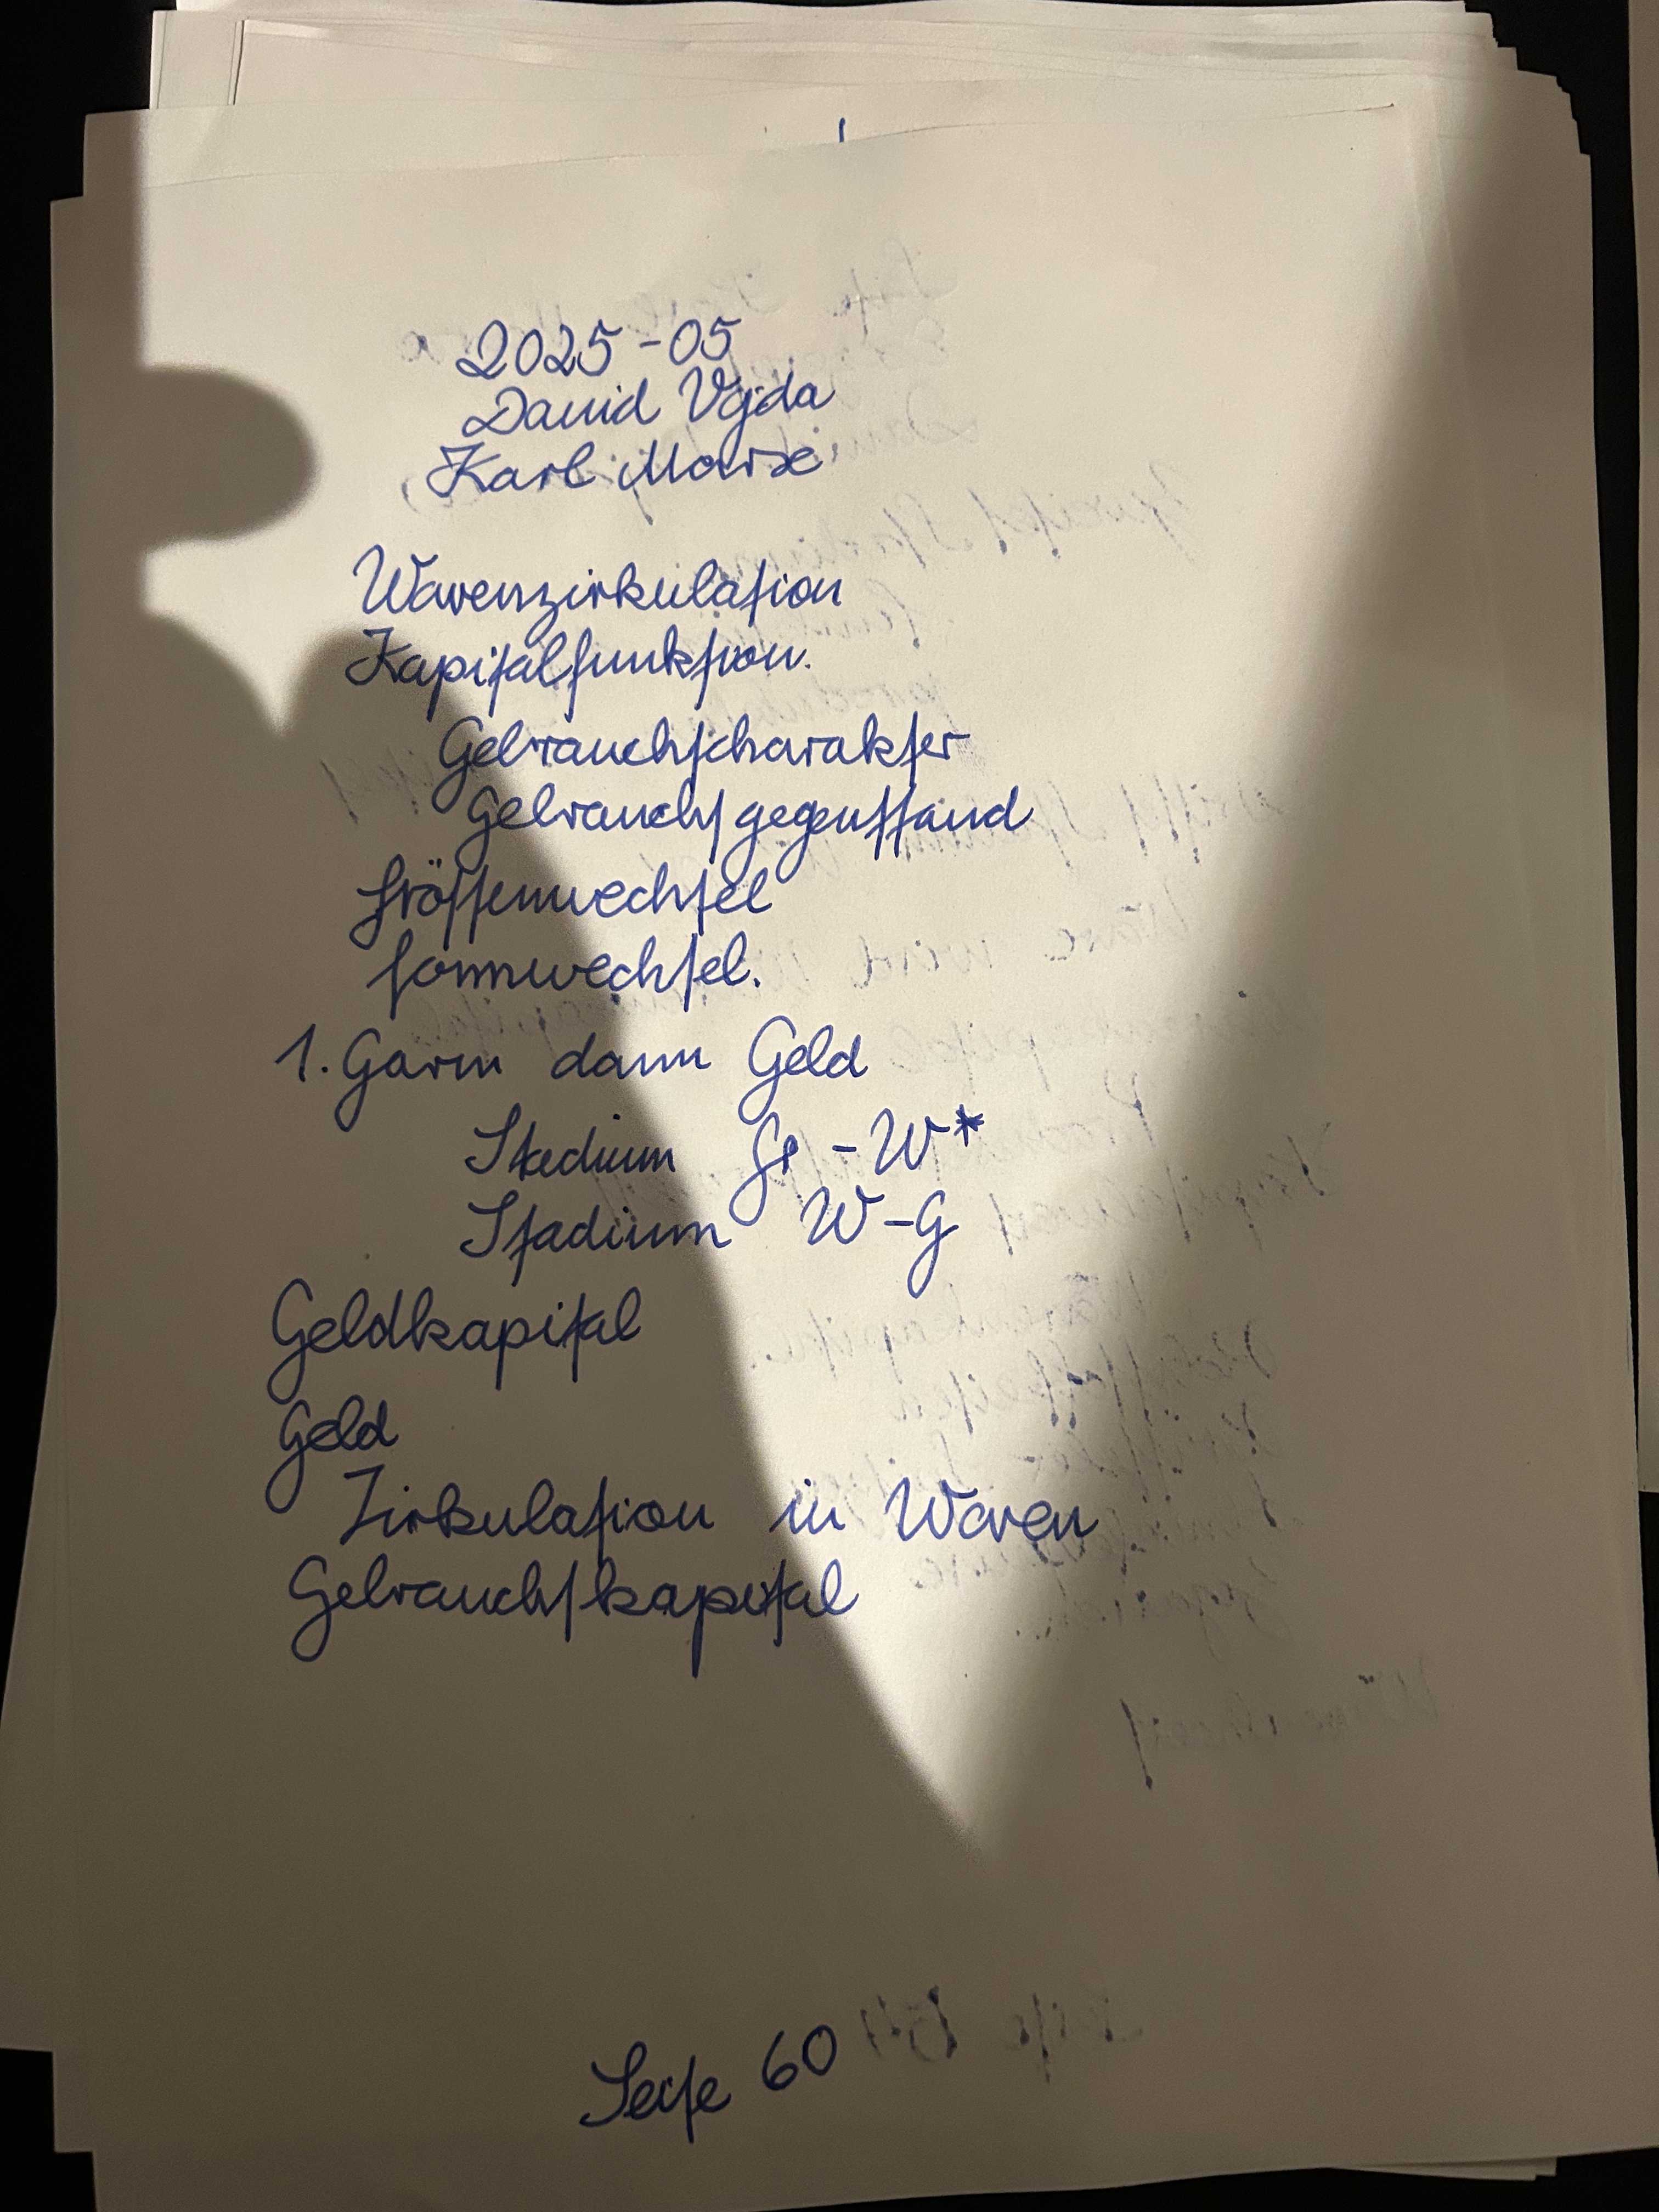 2025-05
David Vajda
Karl Marx
Warenzirkulation
Kapitalfunktion.
Gebrauchscharakter
Gebrauchsgegenstand
Grössenwechsel
Formwechsel.
1. Garn dann Geld
Stadium G - W*
Stadium W-G
Geldkapital
Geld
Zirkulation in Waren
Gebrauchskapital
Seite 60